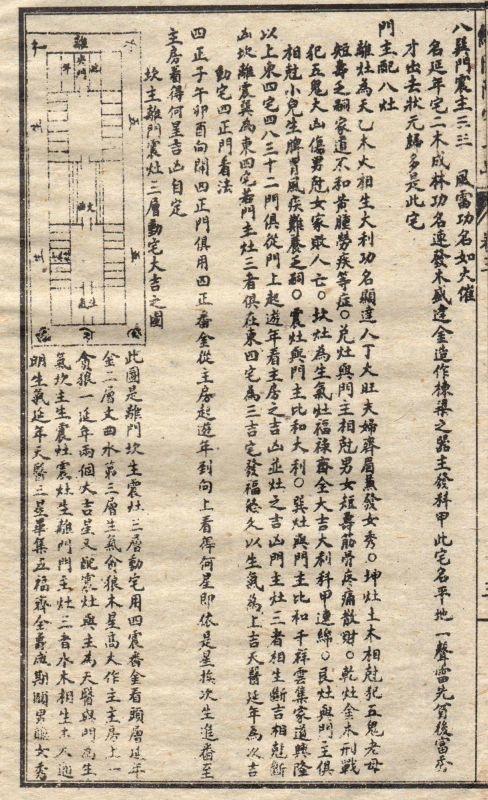 八巽門震主三三　風雷功名如火催
名延年宅二木成林功名連發木盛逢金造作棟梁之器主發科甲此宅名平地一聲雷先貧後富秀
才出去狀元歸多是此宅
門主配八灶
離灶為天乙木火相生大利功名顯達人丁大旺夫婦齊眉並發女秀○坤灶土木相尅犯五鬼老母
短壽乏嗣家道不和黃腫勞疾等症○兌灶與門主相尅男女短壽筋骨疼痛散財○乾灶金木刑戰
犯五鬼大凶傷男尅女家敗人亡○坎灶為生氣灶福祿齊全大吉大利科甲連綿○艮灶與門主俱
相尅小兒生脾胃風疾難養乏嗣○震灶與門主比和大利○巽灶與門主比和千祥雲集家道興隆
以上東四宅四八三十二門俱從門上起遊年看主房之吉凶並灶之吉凶門主灶三者相生斷吉相尅斷
凶坎離震巽為東四宅若門主灶三者俱在東四宅為三吉宅發福悠久以生氣為上吉天醫延年為次吉
動宅四正門看法
四正子午卯酉向開四正門俱用四正番金從主房起遊年到向上看得何星即依是星挨次生進番至
主房看得何星吉凶自定
坎主離門震灶三層動宅大吉之圖
離
門
生
五
文曲
生氣
此圖是離門坎主震灶三層動宅用四震番金看頭層延年
金二層文曲水第三層生氣貪狼木星高大作主主房上一
貪狼一延年兩個大吉星又配震灶與主為天醫與門為生
氣坎主生震灶震灶生離門門主灶三者水木相生木火通
明生氣延年天醫三星畢集五福齊全壽應期頤男聰女秀